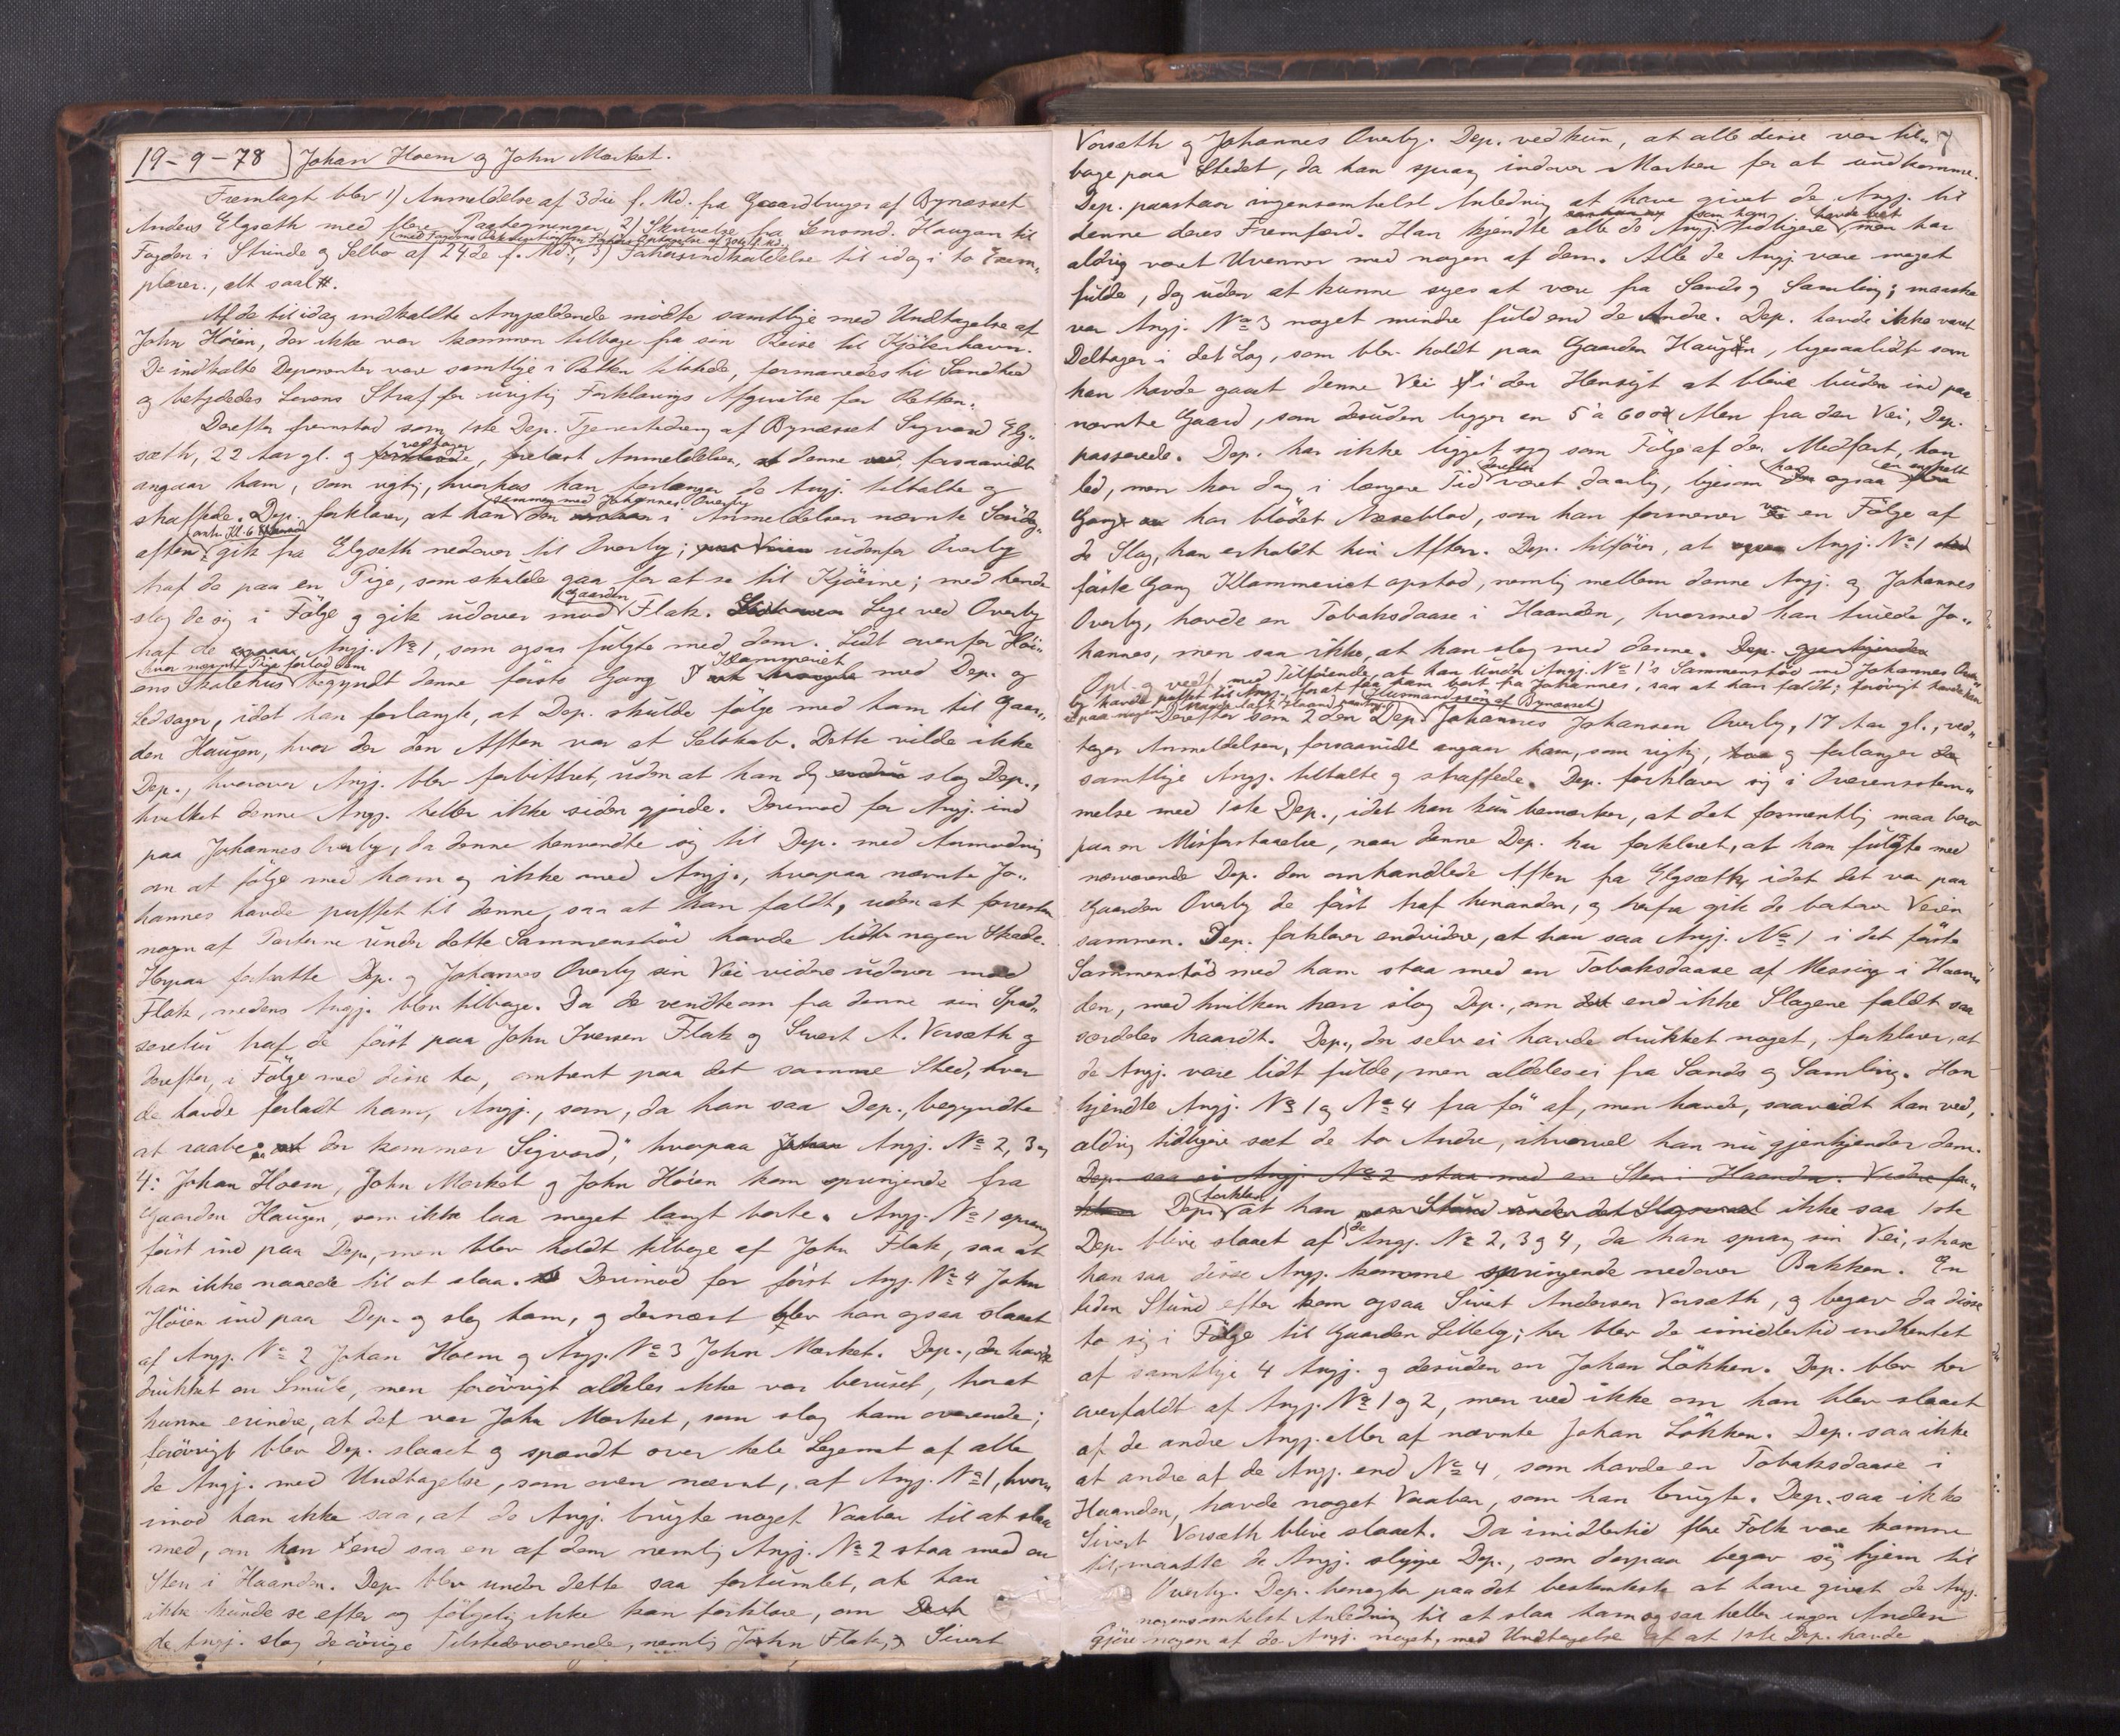 19-9-78 Johan Hoem og John Market.
Fremlagt blev 1) Anmeldelse af 3die f. Md. fra Gaardbruger af Bynæsset
Anders Elgseth med flere Paategninger, 2) Skrivelse fra Lensmd. Haugan til
Fogden i Strinde og Selbo af 24de f. Md., 3) Forhørsindkaldelse til idag i to Exem„
plarer, alt saal#.
Af de til idag indkaldte Angjældende mödte samtlige med Undtagelse af
John Höien, der ikke var kommen tilbage fra sin Reise til Kjöbenhavn.
De indkaldte Deponenter vare samtlige i Retten tilstede, formanedes til Sandhed
og betydedes Lovens Straf for urigtig Forklarings Afgivelse for Retten.
Derefter fremstod som 1ste Dep. Tjenestedreng af Bynæsset Sigvard Elg„
sæth, 22 Aar gl. og vedtager, forelæst Anmeldelsen, denne forsaavidt
angaar ham, som rigtig, hvorhos han forlanger de Angj. tiltalte og
straffede. Dep. forklarer, at han sammen med Johannes Overby den i Anmeldelsen nævnte Söndag
aften omtr. Kl. 6 gik fra Elgseth nedover til Overby; udenfor Overby
traf de paa en Pige, som skulde gaa for at se til Kjöerne; med hende
slog de sig i Fölge og gik udover mod Gaarden Flak. Lige ved Overby
traf de Angj. No 1, som ogsaa fulgte med dem. Lidt ovenfor Höi„
ens Skolehus hvor nævnte Pige forlod dem begyndt denne förste Gang Klammeriet med Dep. og
Ledsager, idet han forlangte, at Dep. skulde fölge med ham til Gaar„
den Haugen, hvor der den Aften var et Selskab. Dette vilde ikke
Dep., hvorover Angj. blev forbittret, uden at han dog slog Dep.,
hvilket denne Angj. heller ikke siden gjorde. Derimod for Angj. ind
paa Johannes Overby, da denne henvendte sig til Dep. med Anmodning
om at fölge med ham og ikke med Angj., hvorpaa nævnte Jo„
hannes havde puffet til denne, saa at han faldt, uden at forresten
nogen af Parterne under dette Sammenstöd havde lidt nogen Skade.
Herpaa fortsatte Dep. og Johannes Overby sin Vei videre udover mod
Flak, medens Angj. blev tilbage. Da de vendte om fra denne sin Spad„
seretur traf de först paa John Iversen Flak og Sivert A. Vorsæth og
derefter, i Fölge med disse to, omtrent paa det samme Sted, hvor
de havde forladt ham, Angj., som, da han saa Dep., begyndte
at raabe: „der kommer Sigvard," hvorpaa Angj. No 2, 3 og
4: Johan Hoem, John Market og John Höien kom springende fra
Gaarden Haugen, som ikke laa meget langt borte. Angj. No 1 sprang
först ind paa Dep., men blev holdt tilbage af John Flak, saa at
han ikke naaede til at slaa. Derimod for först Angj. No 4 John
Höien ind paa Dep. og slog ham, og dernæst blev han ogsaa slaaet
af Angj. No 2 Johan Hoem og Angj. No 3 John Market. Dep., der havde
drukket en Smule, men forövrigt aldeles ikke var beruset, tror at
kunne erindre, at det var John Market, som slog ham overende;
forövrigt blev Dep. slaaet og spændt over hele Legemet af alle
de Angj. med Undtagelse, som oven nævnt, af Angj. No 1, hvor„
imod han ikke saa, at de Angj. brugte noget Vaaben til at slaa
med, om han end saa en af dem nemlig Angj. No 2 staa med en
Sten i Haanden. Dep. blev under dette saa fortumlet, at han
ikke kunde se efter og fölgelig ikke kan forklare, om
de Angj. slog de övrige Tilstedeværende, nemlig John Flak, Sivert
Vorsæth og Johannes Overby. Dep. ved kun, at alle disse var til„ 7
bage paa Stedet, da han sprang indover Marken for at undkomme.
Dep. paastaar ingensomhelst Anledning at have givet de Angj. til
denne deres Fremfærd. Han kjendte alle de Angj. tidligere, men har
aldrig været Uvenner med nogen af dem. Alle de Angj. vare meget
fulde, dog uden at kunne siges at være fra Sands og Samling; maaske
var Angj. No 3 noget mindre fuld end de Andre. Dep. havde ikke været
Deltager i det Lag, som blev holdt paa Gaarden Haugen, ligesaalidt som
han havde gaaet denne Vei i den Hensigt at blive buden ind paa
nævnte Gaard, som desuden ligger en 5 à 600 Alen fra den Vei, Dep.
passerede. Dep. har ikke ligget syg som Fölge af den Medfart, han
led, men har dog i længere Tid derefter været daarlig, ligesom han ogsaa en enkelt
Gang har blödet Næseblod, som han formener var en Fölge af
de Slag, han erholdt hin Aften. Dep. tilföier, at Angj. No 1
förste Gang Klammeriet opstod, nemlig mellem denne Angj. og Johannes
Overby, havde en Tobaksdaase i Haanden, hvormed han truede Jo„
hannes, men saa ikke, at han slog med denne.
Opl. og vedt. med Tilföiende, at han under Angj. No 1's Sammenstöd med Johannes Over„
by havde puffet til Angj. for at faa ham bort fra Johannes, saa at han faldt; forövrigt havde han
ei paa nogen Maade lagt Haand paa Angj.
Derefter som 2den Dep. Husmandssön af Bynæsset Johannes Johansen Overby, 17 Aar gl., ved„
tager Anmeldelsen, forsaavidt angaar ham, som rigtig, og forlanger
samtlige Angj. tiltalte og straffede. Dep. forklarer sig i Overensstem„
melse med 1ste Dep., idet han kun bemærker, at det formentlig maa bero
paa en Misforstaaelse, naar denne Dep. har forklaret, at han fulgte med
nærværende Dep. den omhandlede Aften fra Elgsæth, idet det var paa
Gaarden Overby de först traf hinanden, og herfra gik de bortover Veien
sammen. Dep. forklarer endvidere, at han saa Angj. No 1 i det förste
Sammenstöd med ham staa med en Tobaksdaase af Messing i Haan„
den, med hvilken han slog Dep., om end ikke Slagene faldt saa
særdeles haardt. Dep., der selv ei havde drukket noget, forklarer, at
de Angj. vare lidt fulde, men aldeles ei fra Sands og Samling. Han
kjendte Angj. No 1 og No 4 fra för af, men havde, saavidt han ved,
aldrig tidligere seet de to Andre, ihvorvel han nu gjenkjender dem.
Dep. saa ei Angj. No 2 staa med en Sten i Haanden. Videre for„
klarer Dep. at han ikke saa 1ste
Dep. blive slaaet af de Angj. No 2, 3 og 4, da han sprang sin Vei, strax
han saa disse Angj. komme springende nedover Bakken. En
liden Stund efter kom ogsaa Sivert Andersen Vorsæth, og begav da disse
to sig i Fölge til Gaarden Lilleby; her blev de imidlertid indhentet
af samtlige 4 Angj. og desuden en Johan Lökken. Dep. blev her
overfaldt af Angj. No 1 og 2, men ved ikke om han blev slaaet
af de andre Angj. eller af nævnte Johan Lökken. Dep. saa ikke
at andre af de Angj. end No 4, som havde en Tobaksdaase i
Haanden, havde noget Vaaben, som han brugte. Dep. saa ikke
Sivert Vorsæth blive slaaet. Da imidlertid flere Folk vare komne
til, maatte de Angj. slippe Dep., som derpaa begav sig hjem til
Overby. Dep. benegter paa det bestemteste at have givet de Angj.
nogensomhelst Anledning til at slaa ham og saa heller ingen Anden
gjöre nogen af de Angj. noget, med Undtagelse af at 1ste Dep. havde